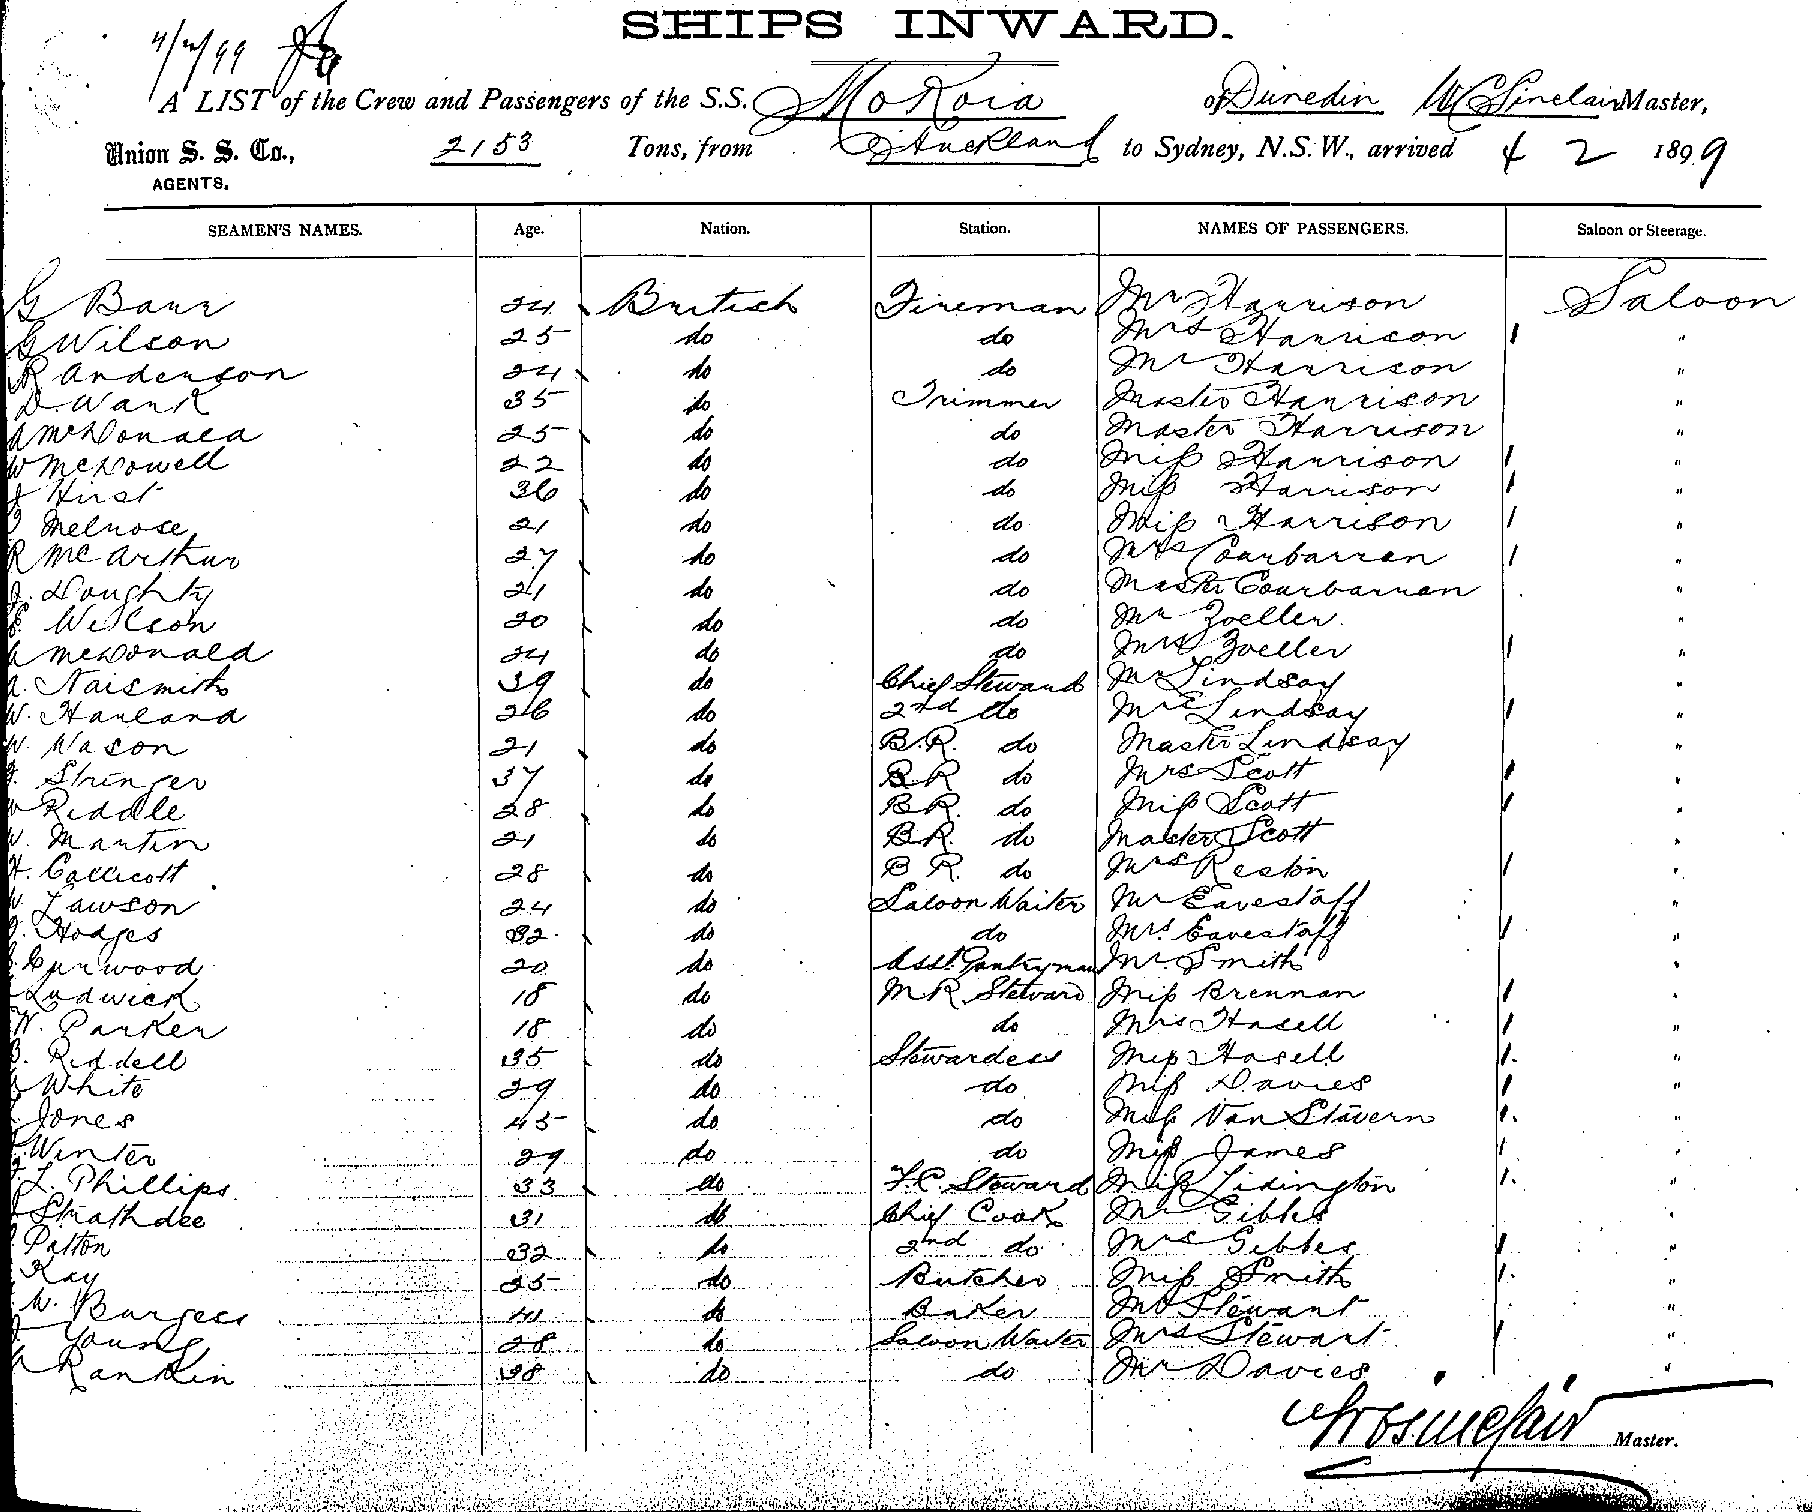 SHIPS INWARD.
4/2/99
A LIST of the Crew and Passengers of the S.S. Mokoia of Dunedin W C Sinclair Master,
Union S. S. Co., 2153 Tons, from Auckland to Sydney, N.S.W., arrived 4 2 1899
AGENTS.
SEAMEN'S NAMES. Age. Nation. Station. NAMES OF PASSENGERS. Saloon or Steerage.
G Barr 24 British Fireman Mr Harrison Saloon
G Wilson 25 do do Mrs Harrison "
R Anderson 24 do do Mr Harrison "
D. Wark 35 do Trimmer Master Harrison "
A McDonald 25 do do Master Harrison "
W McDowell 22 do do Miss Harrison "
J Hirst 36 do do Miss Harrison "
Melrose 21 do do Miss Harrison "
R McArthur 27 do do Mrs Courbarren "
J. Doughty 21 do do Master Courbarren "
E. Wilson 20 do do Mr Zoeller "
A McDonald 24 do do Mrs Zoeller "
A. Naismith 39 do Chief Steward Mr Lindsay "
W. Harland 26 do 2nd do Mrs Lindsay "
W. Nason 21 do B.R. do Master Lindsay "
Stringer 37 do B R do Mrs Scott "
W Riddle 28 do B R. do Miss Scott "
W. Martin 21 do B R. do Master Scott "
H. Callicott 28 do B R. do Mrs Reston "
W. Lawson 24 do Saloon Waiter Mr Eavestaff "
J. Hodges 32 do do Mrs. Eavestaff "
20 do Asst. Pantryman Mr. Smith "
Ludwick 18 do M R Steward Miss Brennan "
W. Parker 18 do do Mrs Hasell "
B. Riddell 35 do Stewardess Miss Hasell "
White 29 do do Miss Davies "
Jones 45 do do Miss Van Stavern "
Winter 29 do do Miss James "
L. Phillips 33 do F.C. Steward Miss Lidington "
Strathdee 31 do Chief Cook Mr Gibbes "
Patton 32 do 2nd do Mrs Gibbes "
Kay 25 do Butcher Miss Smith "
W. Burgess 41 do Baker Mr Stewart "
Young 28 do Saloon Waiter Mrs Stewart "
Rankin 38 do do Mr Davies "
W C Sinclair Master.